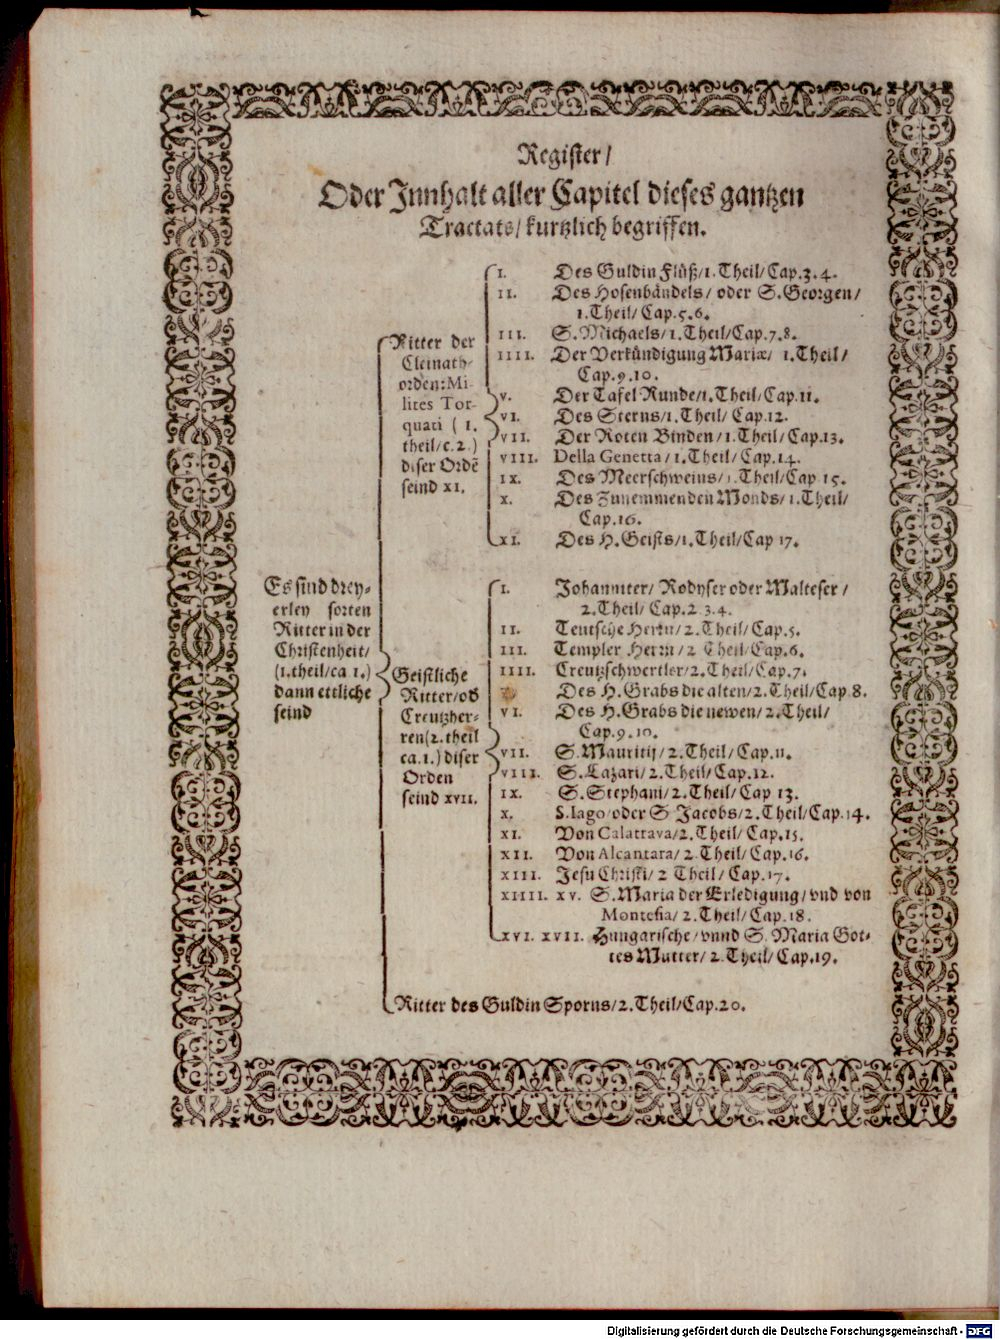 Register/
Oder Innhalt aller Capitel dieses gantzen
Tractats/ kurtzlich begriffen.
Es sind drey-
erley sorten
Ritter in der
Christenheit/
(1.theil/ca 1.)
dann ettliche
seind
Ritter der
Cleinath-
orden: Mi-
lites Tor-
quati ( 1.
theil/c.2.)
diser Ordē
seind XI.
I. Des Guldin Flüß/1.Theil/Cap.3.4.
II. Des Hosenbändels/ oder S.Georgen/
1.Theil/Cap.5.6.
III. S.Michaels/1.Theil/Cap.7.8.
IIII. Der Verkündigung Mariæ/ 1.Theil/
Cap.9.10.
V. Der Tafel Runde/1.Theil/Cap.11.
VI. Des Sterns/1.Theil/ Cap.12.
VII. Der Roten Binden/1.Theil/Cap.13.
VIII. Della Genetta/1.Theil/Cap.14.
IX. Des Meerschweins/1.Theil/Cap 15.
X. Des Zunemmenden Monds/1.Theil/
Cap.16.
XI. Des H.Geists/1.Theil/Cap 17.
Geistliche
Ritter/ob
Creutzher-
ren(2.theil
ca.1.) diser
Orden
seind XVII.
I. Johanniter/ Rodyser oder Malteser/
2.Theil/ Cap.2.3.4.
II. Teutsche Herrn/2.Theil/Cap.5.
III. Templer Herrn/2 Theil/Cap.6.
IIII. Creutzschwertler/2.Theil/Cap.7.
Des H.Grabs die alten/2.Theil/Cap.8.
VI. Des H.Grabs die newen/2.Theil/
Cap.9.10.
VII. S.Mauritij/2.Theil/Cap.11.
VIII. S.Lazari/2.Theil/Cap.12.
IX. S.Stephani/2.Theil/Cap 13.
X. S.Iago/oder S Jacobs/2.Theil/Cap.14.
XI. Von Calatrava/2.Theil/Cap.15.
XII. Von Alcantara/2.Theil/Cap.16.
XIII. Jesu Christi/2 Theil/Cap.17.
XIIII. XV. S.Maria der Erledigung/vnd von
Montesia/2.Theil/Cap.18.
XVI. XVII. Hungarische/vnnd S.Maria Got-
tes Mutter/2.Theil/Cap.19.
Ritter des Guldin Sporns/2.Theil/Cap.20.
Digitalisierung gefördert durch die Deutsche Forschungsgemeinschaft - DFG